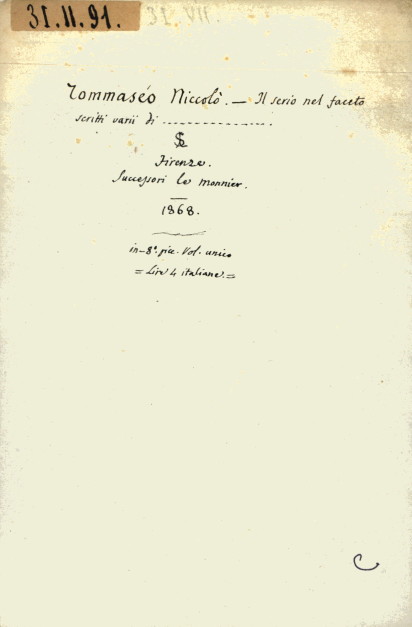 31.II.91.
31. VII.
Tommaséo Niccolò. — Il serio nel faceto
scritti varii di ....................
Firenze.
Successori le monnier.
1868.
in-8º. picc. Vol. unico
= Lire 4 italiane. =
C